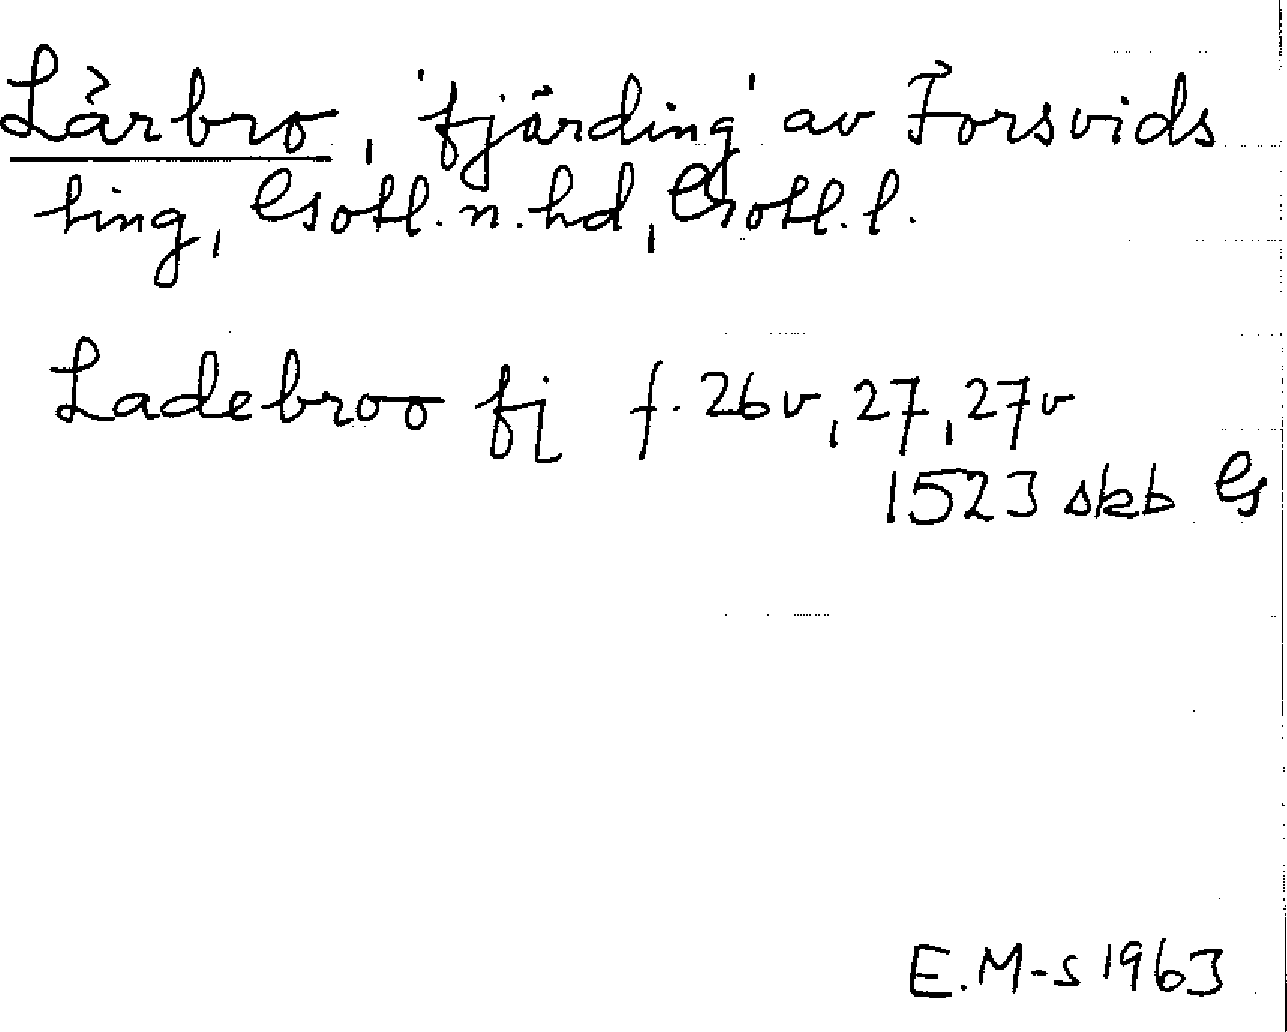 Lärbro, 'fjärding' av Forsvids
ting, Gotl. n. hd, Gotl. l.
Ladebroo fj f. 26v, 27, 27v
1523 skb G
E.M-s 1963